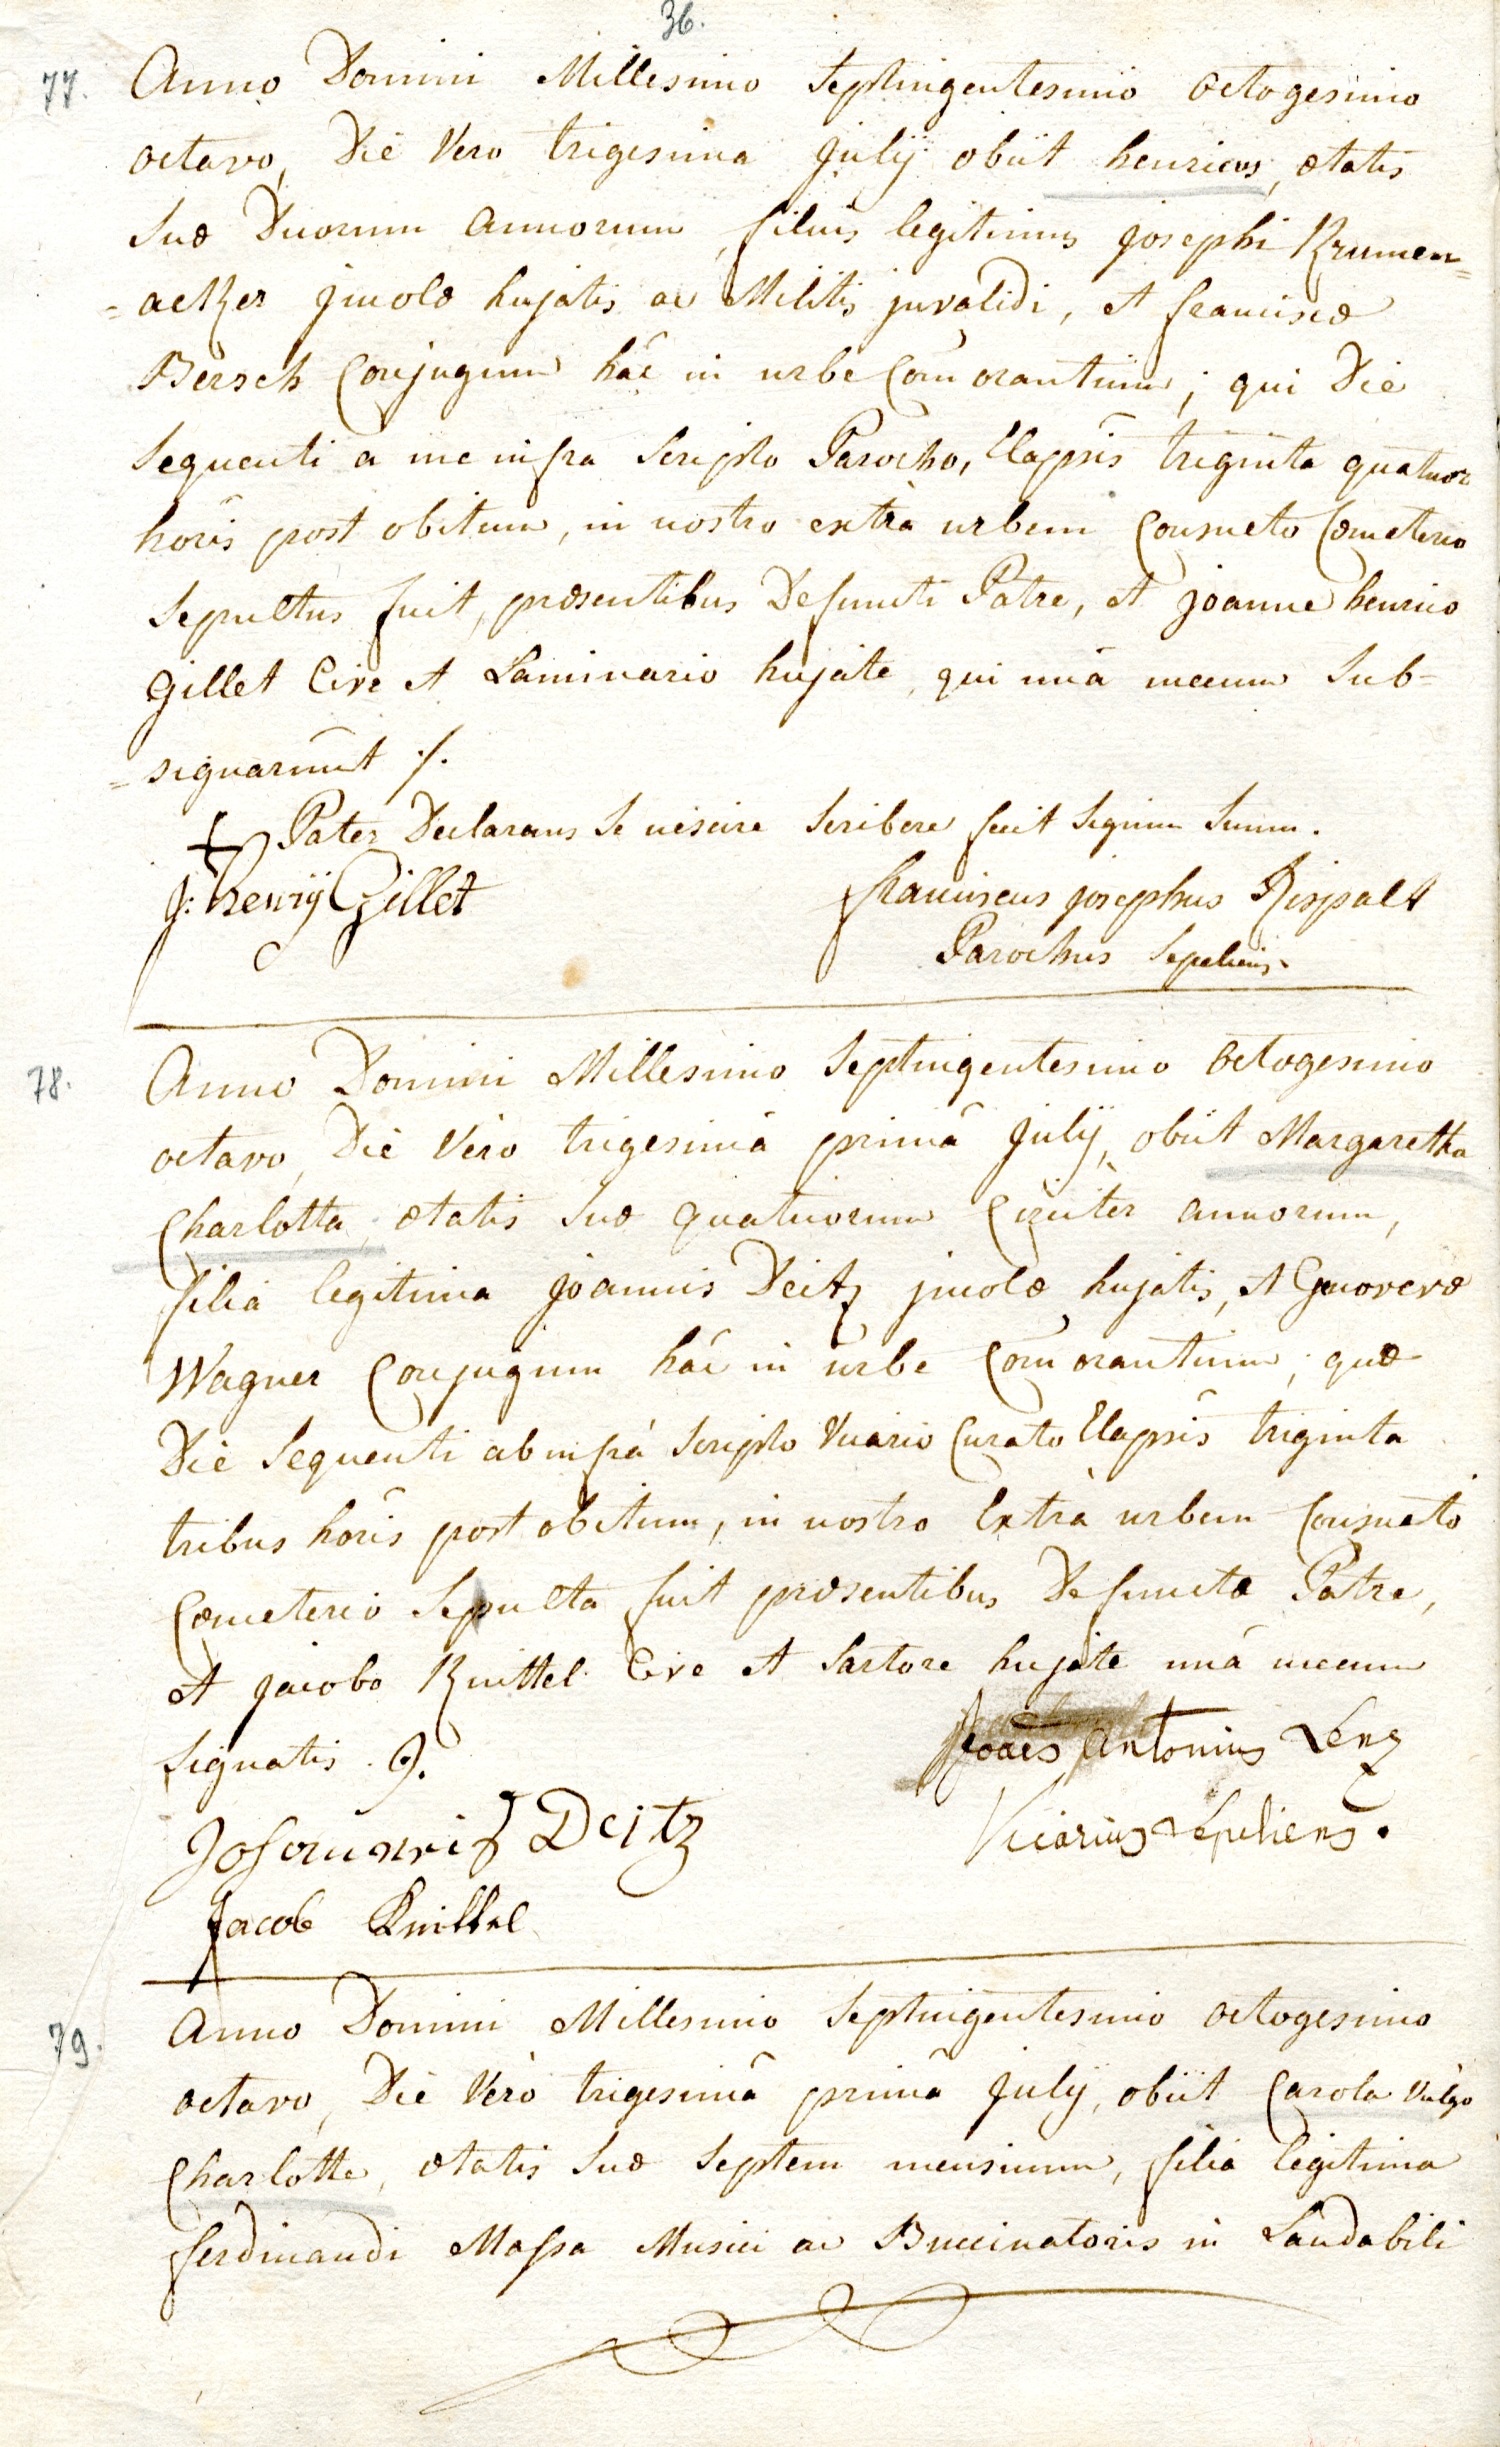 36.
77. Anno Domini Millesimo Septingentesimo octogesimo
octavo, Die Vero trigesima Julij obiit henricus, ætatis
suæ Duorum annorum, filius legitimus josephi Krumen=
=acker jncolæ hujatis ac Militis jnvalidi, et franciscæ
Bersch Conjugum hâc in urbe Com̄orantium; qui Die
sequenti a me infra scripto Parocho, Elapsis triginta quatuor
horis post obitum, in nostro extrà urbem Consueto Cœmeterio
sepultus fuit, præsentibus Defuncti Patre, et joanne henrico
Gillet Cive et Laminario hujate, qui unà mecum sub=
=signarunt ./.
+ Pater Declarans se nescire scribere fecit signum suum.
J: henrÿ Gillet
franciscus josephus Rispalt
Parochus sepeliens.
78. Anno Domini Millesimo Septingentesimo octogesimo
octavo, Die Vero trigesimâ primâ Julij, obiit Margaretha
Charlotta, ætatis suæ quatuorum Circiter annorum,
filia legitima joannis Deitz jncolæ hujatis, et Genovevæ
Wagner Conjugum hâc in urbe Com̄orantium; quæ
Die sequenti ab infrà scripto Vicario Curato Elapsis triginta
tribus horis post obitum, in nostro Extrà urbem Consueto
Cœmeterio sepulta fuit præsentibus Defunctæ Patre,
et jacobo Knittel Cive et Sartore hujate unà mecum
signatis ./.
Joaēs Antonius Lenz
Vicarius sepeliens.
Johannis Deitz
Jacob Knittel
79. Anno Domini Millesimo Septingentesimo octogesimo
octavo, Die Verò trigesimâ primâ Julij, obiit Carola vulgo
Charlotte, ætatis suæ septem mensium, filia legitima
ferdinandi Massa Musici ac Buccinatoris in Laudabili